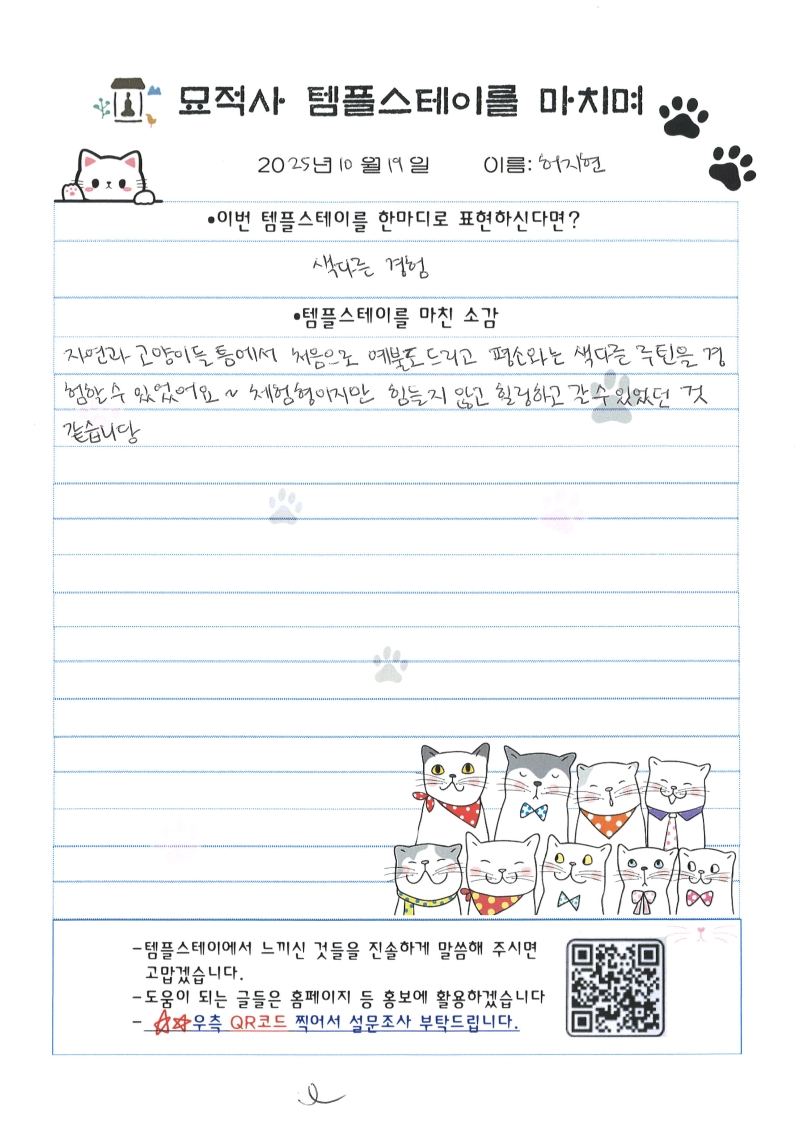 묘적사 템플스테이를 마치며
2025년 10월 19일 이름: 허지현
•이번 템플스테이를 한마디로 표현하신다면?
색다른 경험
•템플스테이를 마친 소감
자연과 고양이들 틈에서 처음으로 예불도 드리고 평소와는 색다른 루틴을 경
험할 수 있었어요 ~ 체험형이지만 힘들지 않고 힐링하고 갈 수 있었던 것
같습니당
-템플스테이에서 느끼신 것들을 진솔하게 말씀해 주시면
고맙겠습니다.
-도움이 되는 글들은 홈페이지 등 홍보에 활용하겠습니다
- ☆☆우측 QR코드 찍어서 설문조사 부탁드립니다.